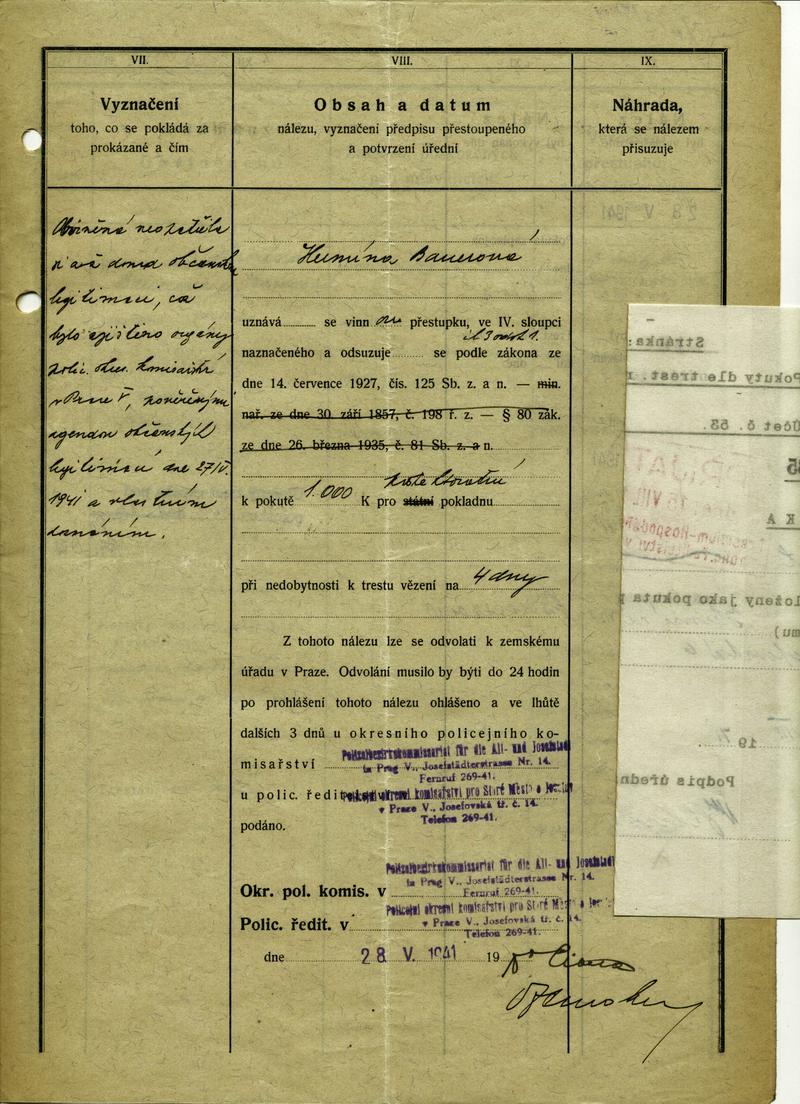 VII.
Vyznačení
toho, co se pokládá za
prokázané a čím
VIII.
Obsah a datum
nálezu, vyznačení předpisu přestoupeného
a potvrzení úřední
IX.
Náhrada,
která se nálezem
přisuzuje
Obviněná
legitimaci, což
bylo zjištěno orgány
polic. okr. komisařství
v Praze V, pověřenými
agendou občanských
legitimací dne 27/V.
1941 a vlastním
doznáním.
Hermína Bauerová
uznává se vinn ou přestupku, ve IV. sloupci
naznačeného a odsuzuje se podle zákona ze
dne 14. července 1927, čís. 125 Sb. z. a n. — min.
nař. ze dne 30. září 1857, č. 198 ř. z. — § 80 zák.
ze dne 26. března 1935, č. 81 Sb. z. a n.
k pokutě 1.000 K pro státní pokladnu
při nedobytnosti k trestu vězení na 4 dny
Z tohoto nálezu lze se odvolati k zemskému
úřadu v Praze. Odvolání musilo by býti do 24 hodin
po prohlášení tohoto nálezu ohlášeno a ve lhůtě
dalších 3 dnů u okresního policejního ko-
misařství
Polizeibezirkskommissariat für die Alt- und Josefstadt
in Prag V., Josefstädterstrasse Nr. 14.
Fernruf 269-41.
u polic. ředit.
Policejní okresní komisařství pro Staré Město a Josefov
v Praze V., Josefovská tř. č. 14.
Telefon 269-41.
podáno.
Polizeibezirkskommissariat für die Alt- und Josefstadt
in Prag V., Josefstädterstrasse Nr. 14.
Okr. pol. komis. v
Fernruf 269-41.
Policejní okresní komisařství pro Staré Město a Josefov
Polic. ředit. v
v Praze V., Josefovská tř. č. 14.
Telefon 269-41.
dne 28 V. 1941 19
Stránka:
Pokuty dle trest.
Účet č. 53.
K A
loženy jako pokuta
mu)
19
Podpis úředn